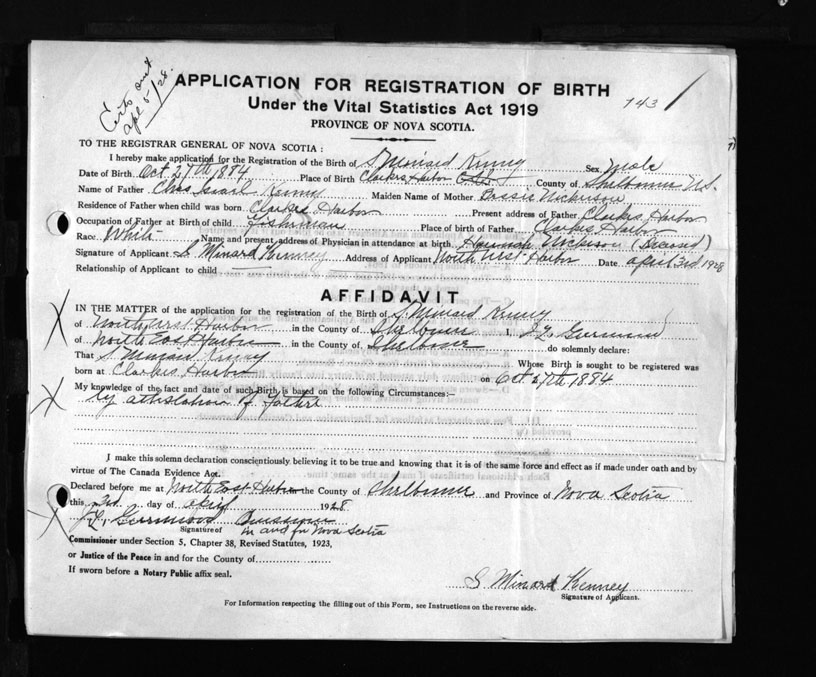 Certs out
Apl 5/28.
APPLICATION FOR REGISTRATION OF BIRTH
Under the Vital Statistics Act 1919
143
PROVINCE OF NOVA SCOTIA.
TO THE REGISTRAR GENERAL OF NOVA SCOTIA :
I hereby make application for the Registration of the Birth of S. Miniard Kenney Sex Male
Date of Birth Oct 27th 1884 Place of Birth Clarkes Harbor County of Shelburne N.S.
Name of Father Chas Israel Kenney Maiden Name of Mother Bessie Nickerson
Residence of Father when child was born Clarkes Harbor Present address of Father Clarkes Harbor
Occupation of Father at Birth of child Fisherman Place of birth of Father Clarkes Harbor
Race White Name and present address of Physician in attendance at birth Hannah Nickerson
Signature of Applicant S Minard Kenney Address of Applicant North West Harbor Date April 3rd 1928
Relationship of Applicant to child
AFFIDAVIT
IN THE MATTER of the application for the registration of the Birth of S. Miniard Kenney
of North East Harbor in the County of Shelburne I,
of North East Harbor in the County of Shelburne do solemnly declare:
That S Miniard Kenney Whose Birth is sought to be registered was
born at Clarkes Harbor on Oct 27th 1884
My knowledge of the fact and date of such Birth is based on the following Circumstances:—
by of father
I make this solemn declaration conscientiously believing it to be true and knowing that it is of the same force and effect as if made under oath and by
virtue of The Canada Evidence Act.
Declared before me at North East Harbor the County of Shelburne and Province of Nova Scotia
this 3rd day of April 1928
Signature of in and for Nova Scotia
Commissioner under Section 5, Chapter 38, Revised Statutes, 1923,
or Justice of the Peace in and for the County of
If sworn before a Notary Public affix seal.
S Minard Kenney
Signature of Applicant.
For Information respecting the filling out of this Form, see Instructions on the reverse side.